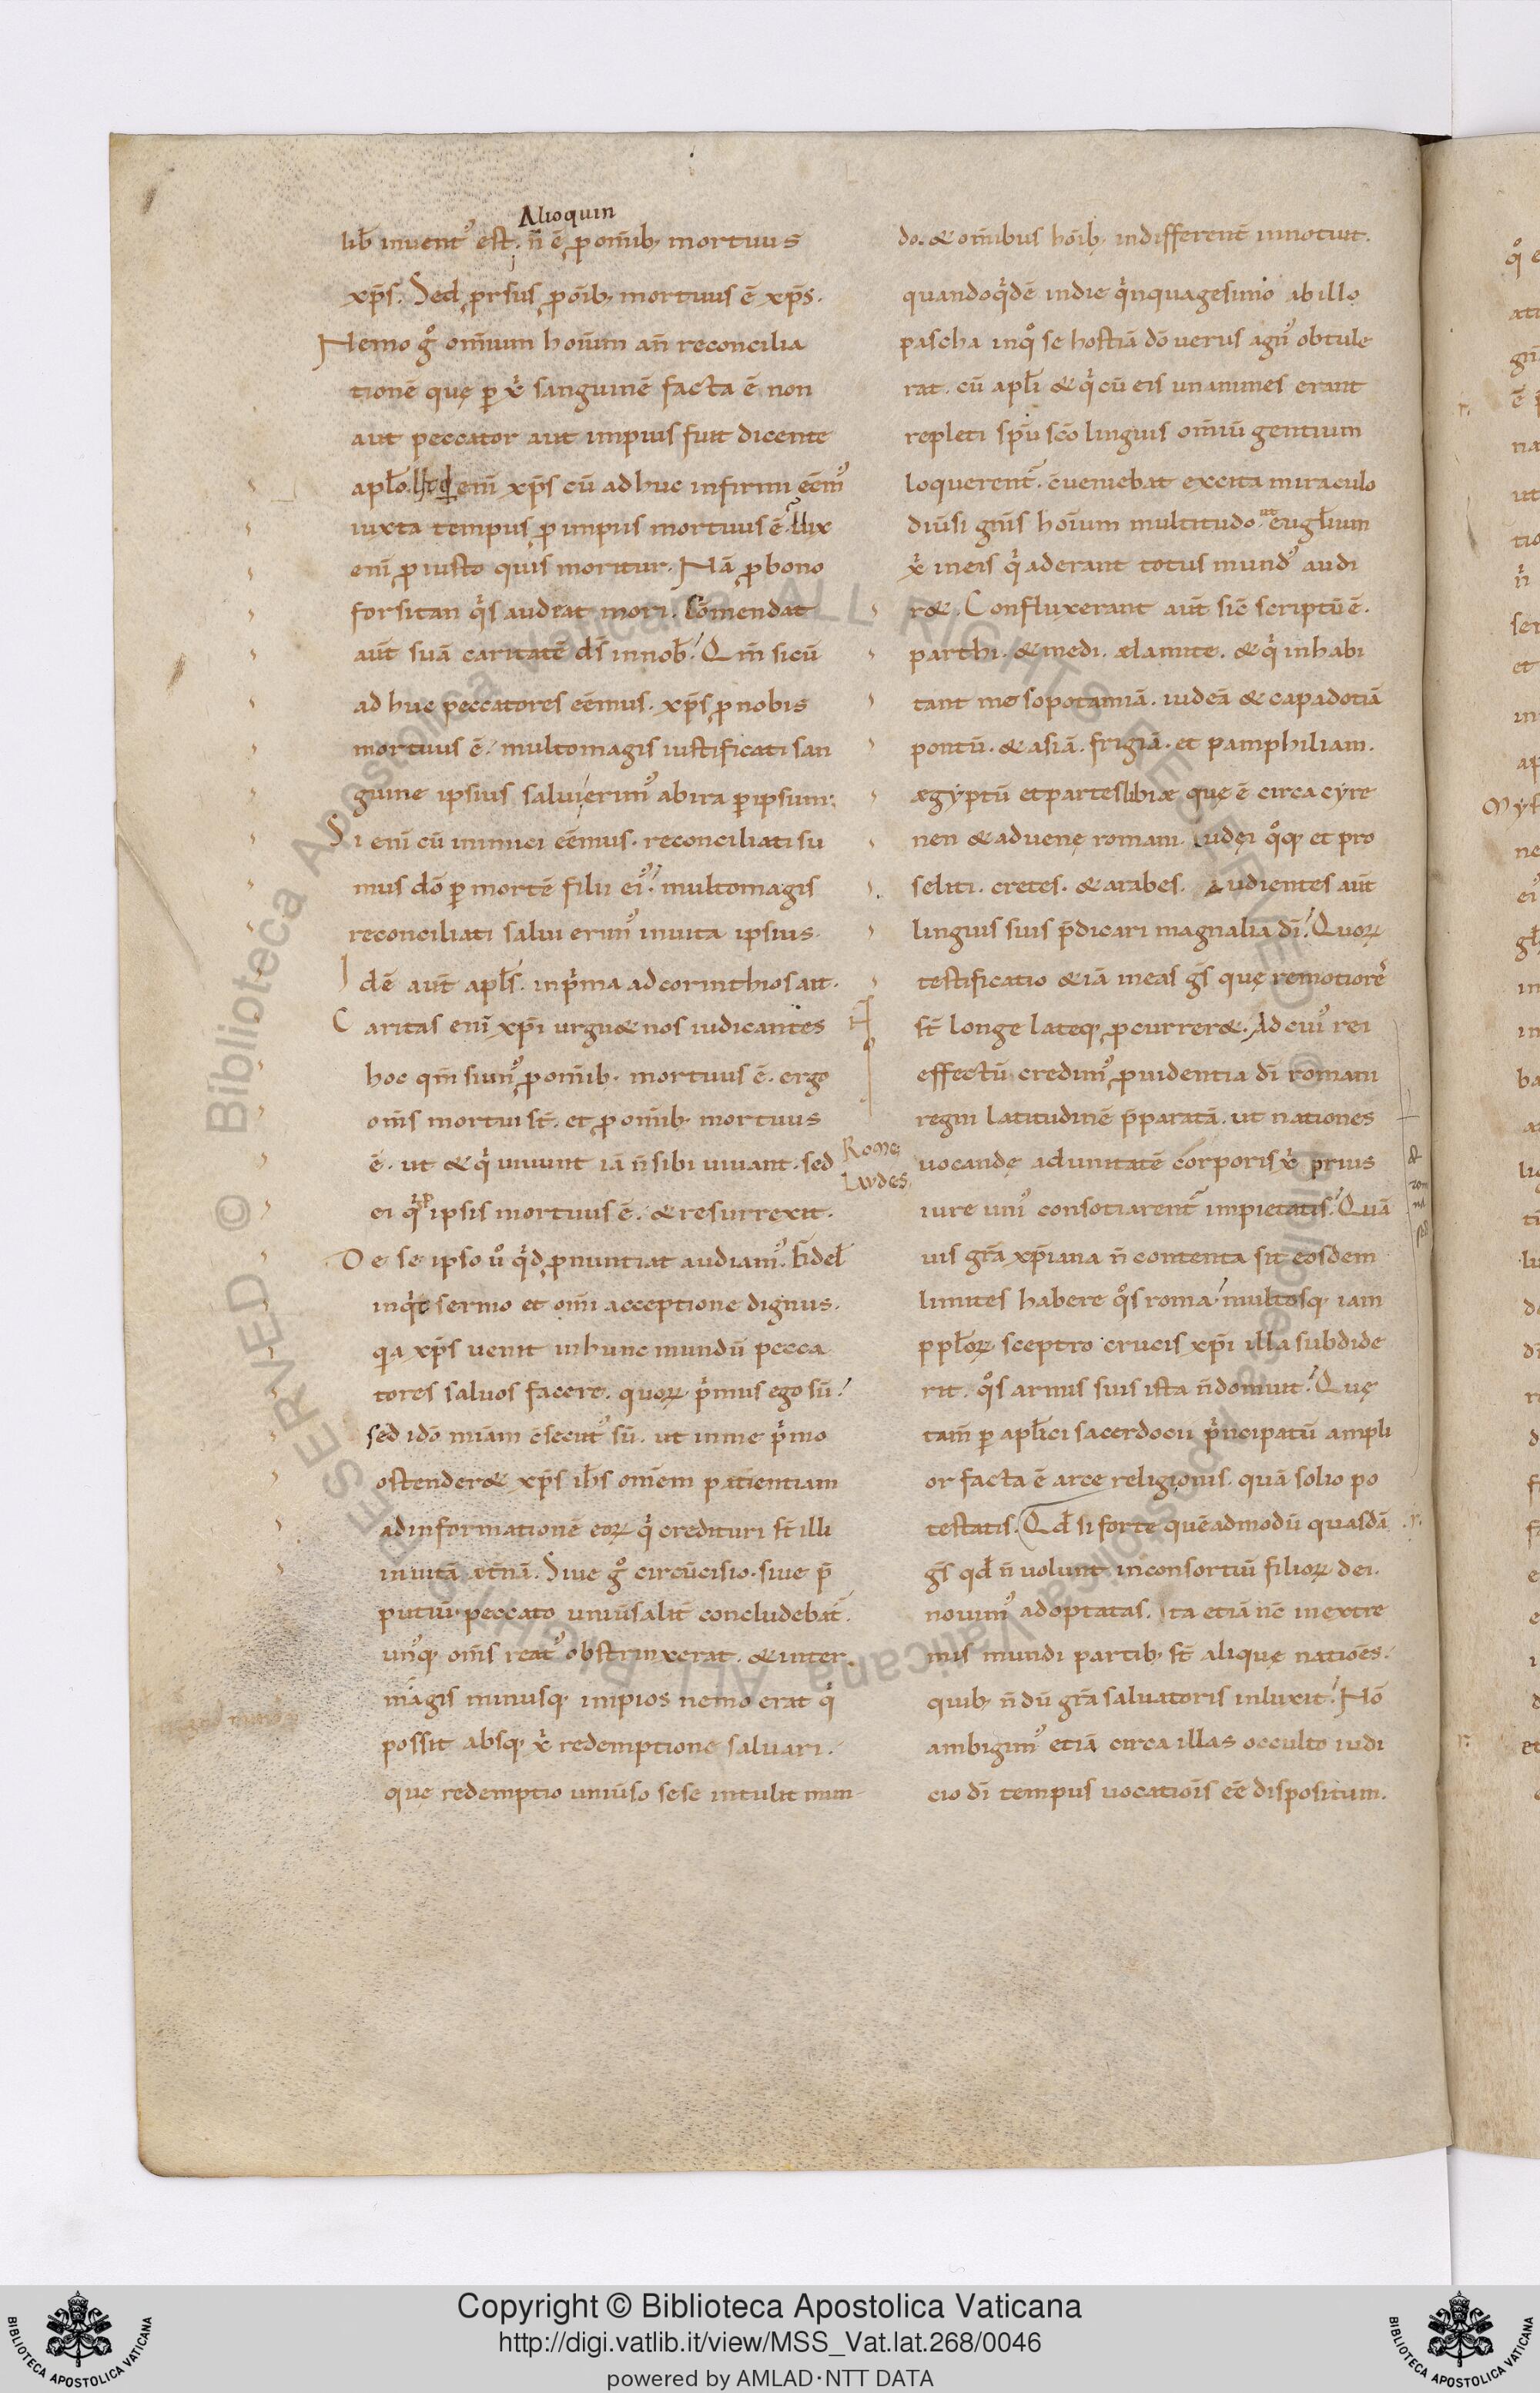 Alioquin
lib̄ inuentꝰ est. n̄ ē ꝓ om̄ib; mortuus
xp̄s. Sed ꝓrsus ꝓ oīb; mortuus ē xp̄s.
Nemo gͦ om̄ium hoīum an̄ reconcilia
tionē quę ꝑ xͥ sanguinē facta ē. non
aut peccator aut impius fuit dicente
apl̄o. enī xp̄s cū adhuc infirmi eēmꝰ
iuxta tempus ꝓ impiis mortuus ē. Uix
enī ꝓ iusto quis moritur. Nā ꝓ bono
forsitan qͥs audeat mori. Cōmendat
aūt suā caritatē ds̄ in nob̄. Qm̄ si cū
adhuc peccatores eēmus. xp̄s ꝓ nobis
mortuus ē. multomagis iustificati san
guine ipsius salui erimꝰ ab ira ꝑ ipsum;
Si enī cū inimici eēmus. reconciliati su
mus dō ꝑ mortē filii eiꝰ. multomagis
reconciliati salui erimꝰ in uita ipsius.
Idē aūt apl̄s. in pͥma ad corinthios ait.
Caritas enī xp̄i urgu& nos iudicantes
hoc qm̄ si unꝰ ꝓ om̄ib; mortuus ē. ergo
om̄s mortui st̄. et ꝓ om̄ib; mortuus
ē. ut & qͥ uiuunt iā n̄ sibi uiuant. sed
ei qͥ ꝓ ipsis mortuus ē. & resurrexit.
De se ipso uͦ qͥd ꝓnuntiat audiamꝰ. Fidel̄
inqͥt sermo et om̄i acceptione dignus.
qa xp̄s uenit in hunc mundū pecca
tores saluos facere. quoꝝ pͥmus ego sū.
sed idō miām cōsecutꝰ sū. ut in me pͥmo
ostender& xp̄s ih̄s omnem patientiam
ad informationē eoꝝ qͥ credituri st̄ illi
in uitā ęt̄nā. Siue gͦ circūcisio. siue p̄
putiū peccato uniūsalit̄ concludebat̄.
unꝰq; om̄s reatꝰ obstrinxerat. & inter
magis minusq; impios nemo erat qͥ
possit absq; xͥ redemptione saluari.
que redemptio uniūso sese intulit mun
do. & om̄ibus hoīb; indifferent̄ innotuit.
quandoqͥdē in die qͥnquagesimo ab illo
pascha in qͦ se hostiā dō uerus agnꝰ obtule
rat. cū apl̄i & qͥ cū eis unanimes erant
repleti sp̄u scō linguis om̄iū gentium
loquerent̄. cōueniebat excita miraculo
diūsi gn̄is hoīum multitudo. ut eūgl̄ium
xͥ in eis qͥ aderant totus mundꝰ audi
r&. Confluxerant aūt sic̄ scriptū ē.
parthi. & medi. ælamite. & qͥ inhabi
tant mesopotamiā. iudeā & capadotiā
pontū. & asiā. frigiā. et pamphiliam.
ægyptū et partes libiæ quę ē circa cyre
nen & aduenę romani. Iudęi qͦq; et pro
seliti. cretes. & arabes. Audientes aūt
linguis suis p̄dicari magnalia dī. Quoꝝ
testificatio & iā in eas gs̄ quę remotiores
st̄ longe lateq; ꝓcurrer&. Ad cuiꝰ rei
effectū credimꝰ ꝓuidentia dī romani
regni latitudinē p̄paratā. ut nationes
Romę
Laudes
uocandę ad unitatē corporis xͥ prius
iure uniꝰ consotiarent̄ impietatis. Quā
uis gr̄a xp̄iana n̄ contenta sit eosdem
limites habere qͦs roma. multosq; iam
ppl̄oꝝ sceptro crucis xp̄i illa subdide
rit. qͦs armis suis ista n̄ domuit. Quę
tam̄ ꝑ apl̄ici sacerdocii pͥncipatū ampli
or facta ē arce religionis. quā solio po
testatis. Qd̄ si forte quēadmodū quasdā
gs̄ qd̄ n̄ uolunt in consortiū filioꝝ dei.
nouimꝰ adoptatas. Ita etiā nc̄ in extre
mis mundi partib; st̄ aliquę natiōes.
quib; n̄dū gr̄a saluatoris inluxit. Nō
ambigimꝰ etiā circa illas occulto iudi
cio dī tempus uocatiōis eē dispositum.
Copyright © Biblioteca Apostolica Vaticana
http://digi.vatlib.it/view/MSS_Vat.lat.268/0046
powered by AMLAD·NTT DATA
BIBLIOTECA APOSTOLICA VATICANA
BIBLIOTECA APOSTOLICA VATICANA